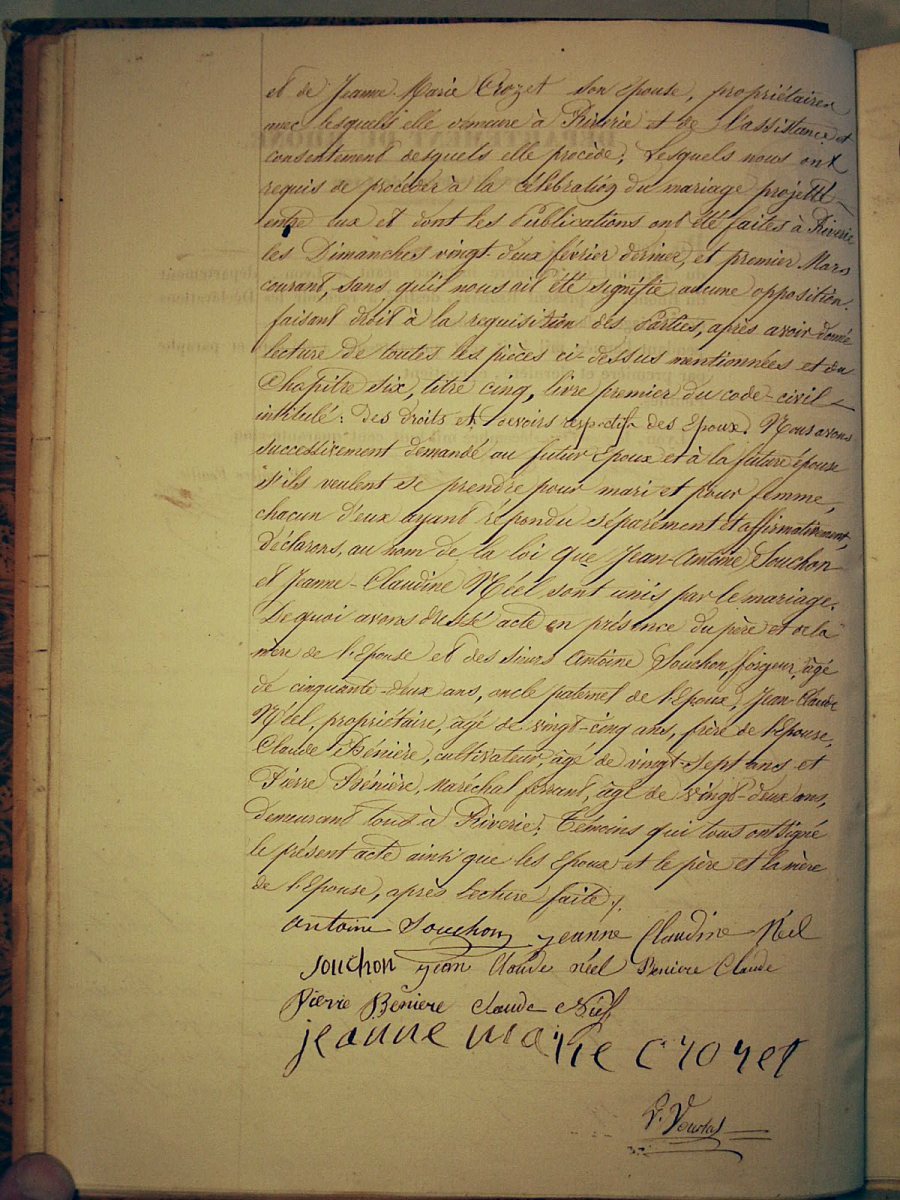 et de Jeanne Marie Crozet son Epouse, propriétaires
avec lesquels elle demeure à Riverie et de l'assistance et
consentement desquels elle procède; Lesquels nous ont
requis de procéder à la célébration du mariage projetté
entre eux et dont les Publications ont été faites à Riverie
les Dimanches vingt-deux février dernier, et premier Mars
courant, sans qu'il nous ait été signifié aucune opposition.
faisant droit à la requisition des Parties, après avoir donné
lecture de toutes les pièces ci-dessus mentionnées et du
Chapitre six, titre cinq, livre premier du code-civil
intitulé: des droits et devoirs respectifs des Epoux. Nous avons
successivement demandé au futur époux et à la future épouse
s'ils veulent se prendre pour mari et pour femme,
chacun d'eux ayant repondu séparément et affirmativement,
Déclarons, au nom de la loi que Jean-Antoine Souchon
et Jeanne-Claudine Néel sont unis par le mariage.
De quoi avons dressé acte en présence du père et de la
mère de l'Epouse et des sieurs Antoine Souchon, forgeur, âgé
de cinquante-deux ans, oncle paternel de l'Epoux; Jean-Claude
Néel, propriétaire, âgé de vingt-cinq ans, frère de l'Epouse,
Claude Bénière, cultivateur, âgé de vingt-sept ans et
Pierre Bénière, Maréchal ferrant, âgé de vingt-deux ans,
demeurant tous à Riverie; Témoins qui tous ont signé
le présent acte ainsi que les Epoux et le père et la mère
de l'Epouse, après lecture faite.
antoine Souchon jeanne Claudine Néel
Souchon jean Claude néel Beniere Claude
Pierre Béniere claude
jeanne marie crozet